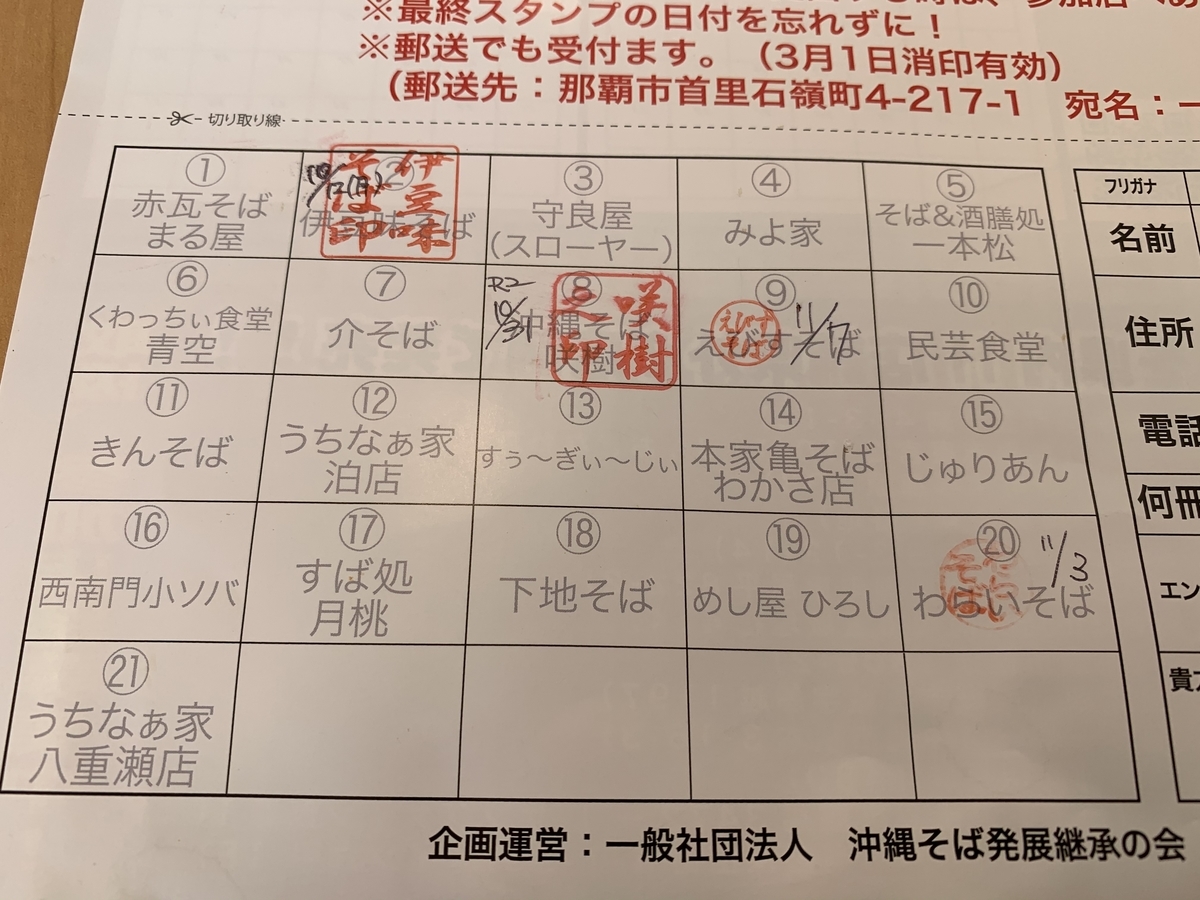 ※最終スタンプの日付を忘れずに！
※郵送でも受付ます。（3月1日消印有効）
（郵送先：那覇市首里石嶺町4-217-1　宛名：一
切り取り線
① 赤瓦そば
まる屋
② 伊豆味そば
10/12(月)
伊豆味
そば印
③ 守良屋
(スローヤー)
④ みよ家
⑤ そば&酒膳処
一本松
⑥ くわっちぃ食堂
青空
⑦ 介そば
⑧ 沖縄そば
咲樹
R2
10/31
咲樹
之印
⑨ えびすそば
えびす
そば
11/7
⑩ 民芸食堂
⑪ きんそば
⑫ うちなぁ家
泊店
⑬ すぅ〜ぎぃ〜じぃ
⑭ 本家亀そば
わかさ店
⑮ じゅりあん
⑯ 西南門小ソバ
⑰ すば処
月桃
⑱ 下地そば
⑲ めし屋 ひろし
⑳ わらいそば
11/3
㉑ うちなぁ家
八重瀬店
フリガナ
名前
住所
電話
何冊
エン
貴方
企画運営：一般社団法人　沖縄そば発展継承の会